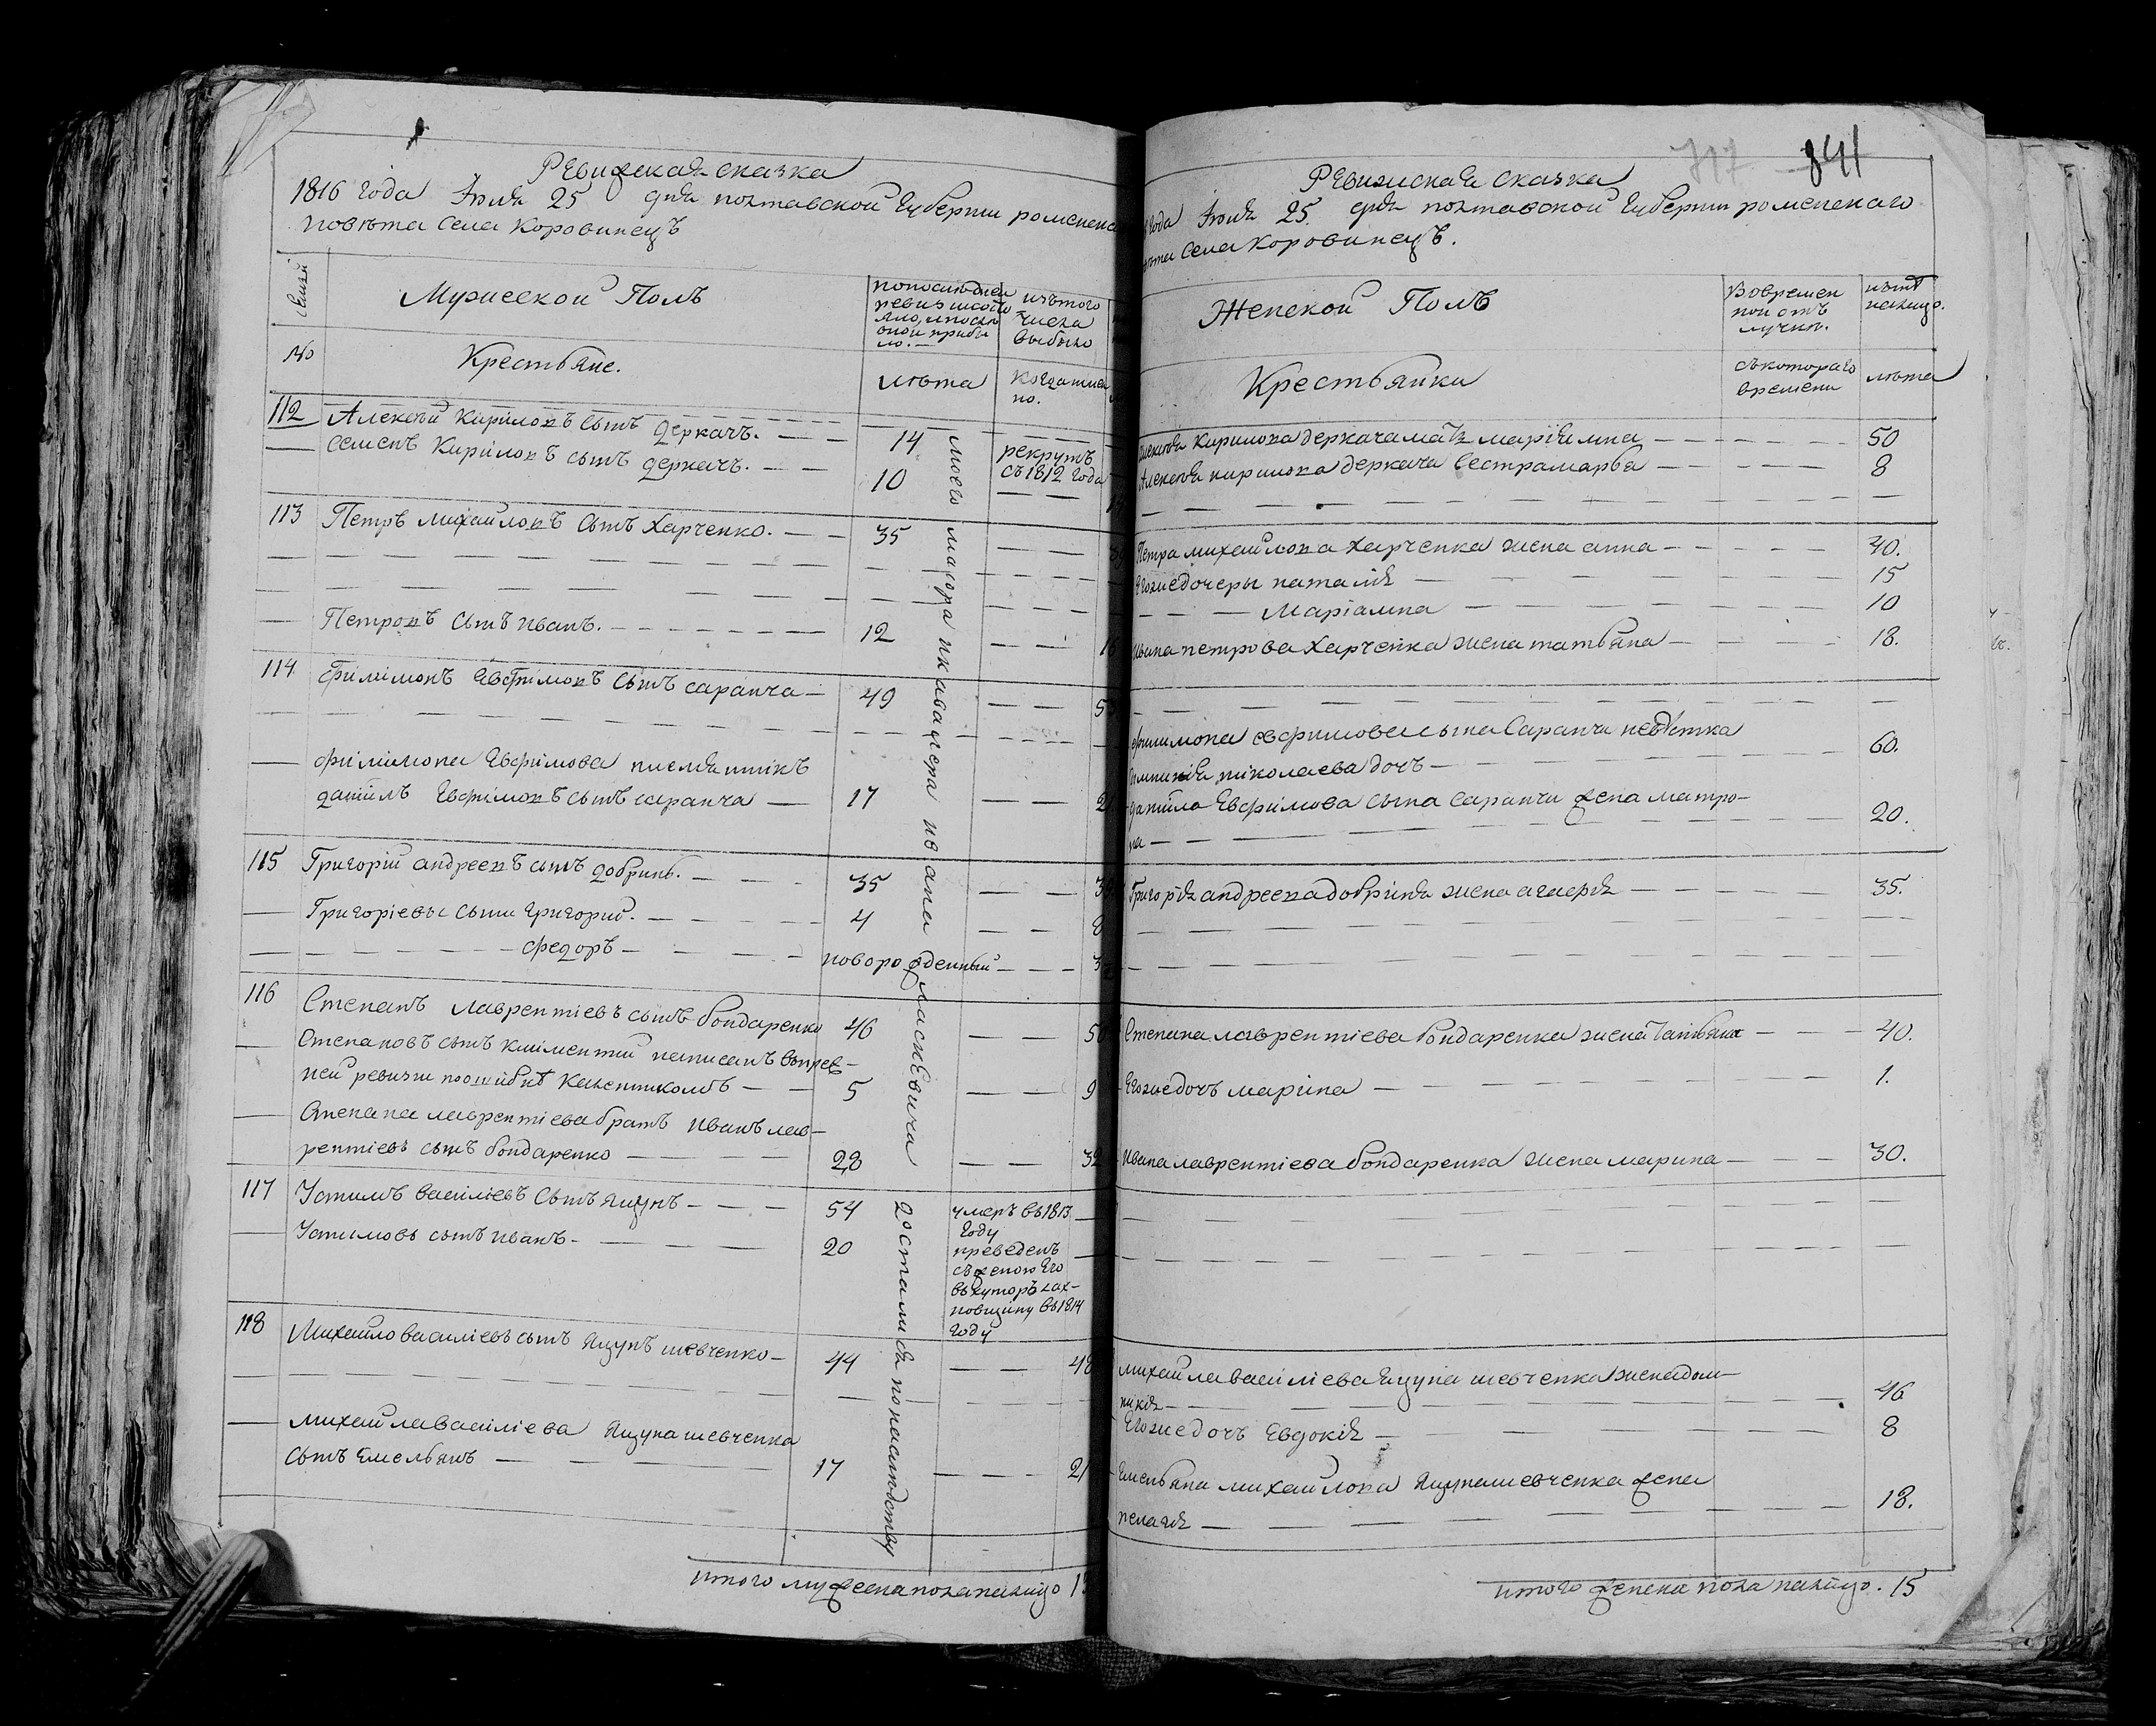 Ревижская сказка
1816 года Июля 25 дня полтавской губернии роменска
повѣта села Коровинецъ
Мужеской Полъ
по последней
ревизии состо
яло, и после
оной прибы
ло.
изъ того
числа
выбыло
№
Крестьяне.
лѣта
когда имен
но.
112 Алексѣй Кириловъ сынъ Деркачъ. 14 рекрутъ
съ 1812 года
Семенъ Кириловъ сынъ Деркачъ. 10
113 Петръ Михайловъ сынъ Харченко. 35
Петровъ сынъ Иванъ. 12 16
114 Филимонъ Евфимовъ сынъ Саранча 49
Филимона Евфимова племянникъ
Данiилъ Евфимовъ сынъ Саранча 17
115 Григорий Андреевъ сынъ Добринь. 35
Григориевы сыни Григорий. 4 8
Федоръ новорожденный
116 Степанъ Лаврентiевъ сынъ Бондаренко 46 50
Степановъ сынъ Климентий написанъ въпрев-
ней ревизии поошибкѣ Калениикомъ 5 9
Степана Лаврентiева братъ Иванъ Лав-
рентiевъ сынъ Бондаренко 28 32
117 Устимъ Васiлiевъ сынъ Яцунъ 54 умеръ въ 1813
году
Устимовъ сынъ Иванъ 20 преведенъ
съ женою его
въ хуторъ Лах-
новщину въ 1814
году
118 Михайло Васiлiевъ сынъ Яцунъ Шевченко 44 48
Михайла Васiлiева Яцуна Шевченка
сынъ Емельянъ 17 21
моего маiора и кавалера ивана власиевича досталися по наследству
итого мужеска пола налицо
841
Ревижская сказка
года Июля 25 дня полтавской губернии роменскаго
села Коровинецъ.
Женской Полъ
Во времен
ной отъ
лучки.
нынѣ
налицо.
Крестьянки
съ котораго
времени
лѣта
Алексѣя Кирилова Деркача мать Марiямна 50
Алексѣя Кирилова Деркача сестра Марья 8
Петра Михайлова Харченка жена Анна 40.
Егоже дочеры Наталiя 15
Марiамна 10
Ивана Петрова Харченка жена Татьяна 18.
Филимона Евфимова сына Саранчи невѣстка
Николаева дочь 60.
Данiила Евфимова сына Саранчи жена Матро-
на 20.
Григорiя Андреева Добриня жена Агафiя 35.
Степана Лаврентiева Бондаренка жена Татьяна 40.
Егоже дочь Марiна 1.
Ивана Лаврентiева Бондаренка жена Марина 30.
Михайла Васiлiева Яцуна Шевченка жена Дом-
никiя 46
Егоже дочь Евдокiя 8
Емельяна Михайлова Яцуна Шевченка жена
Пелагiя 18.
итого женска пола налицо. 15